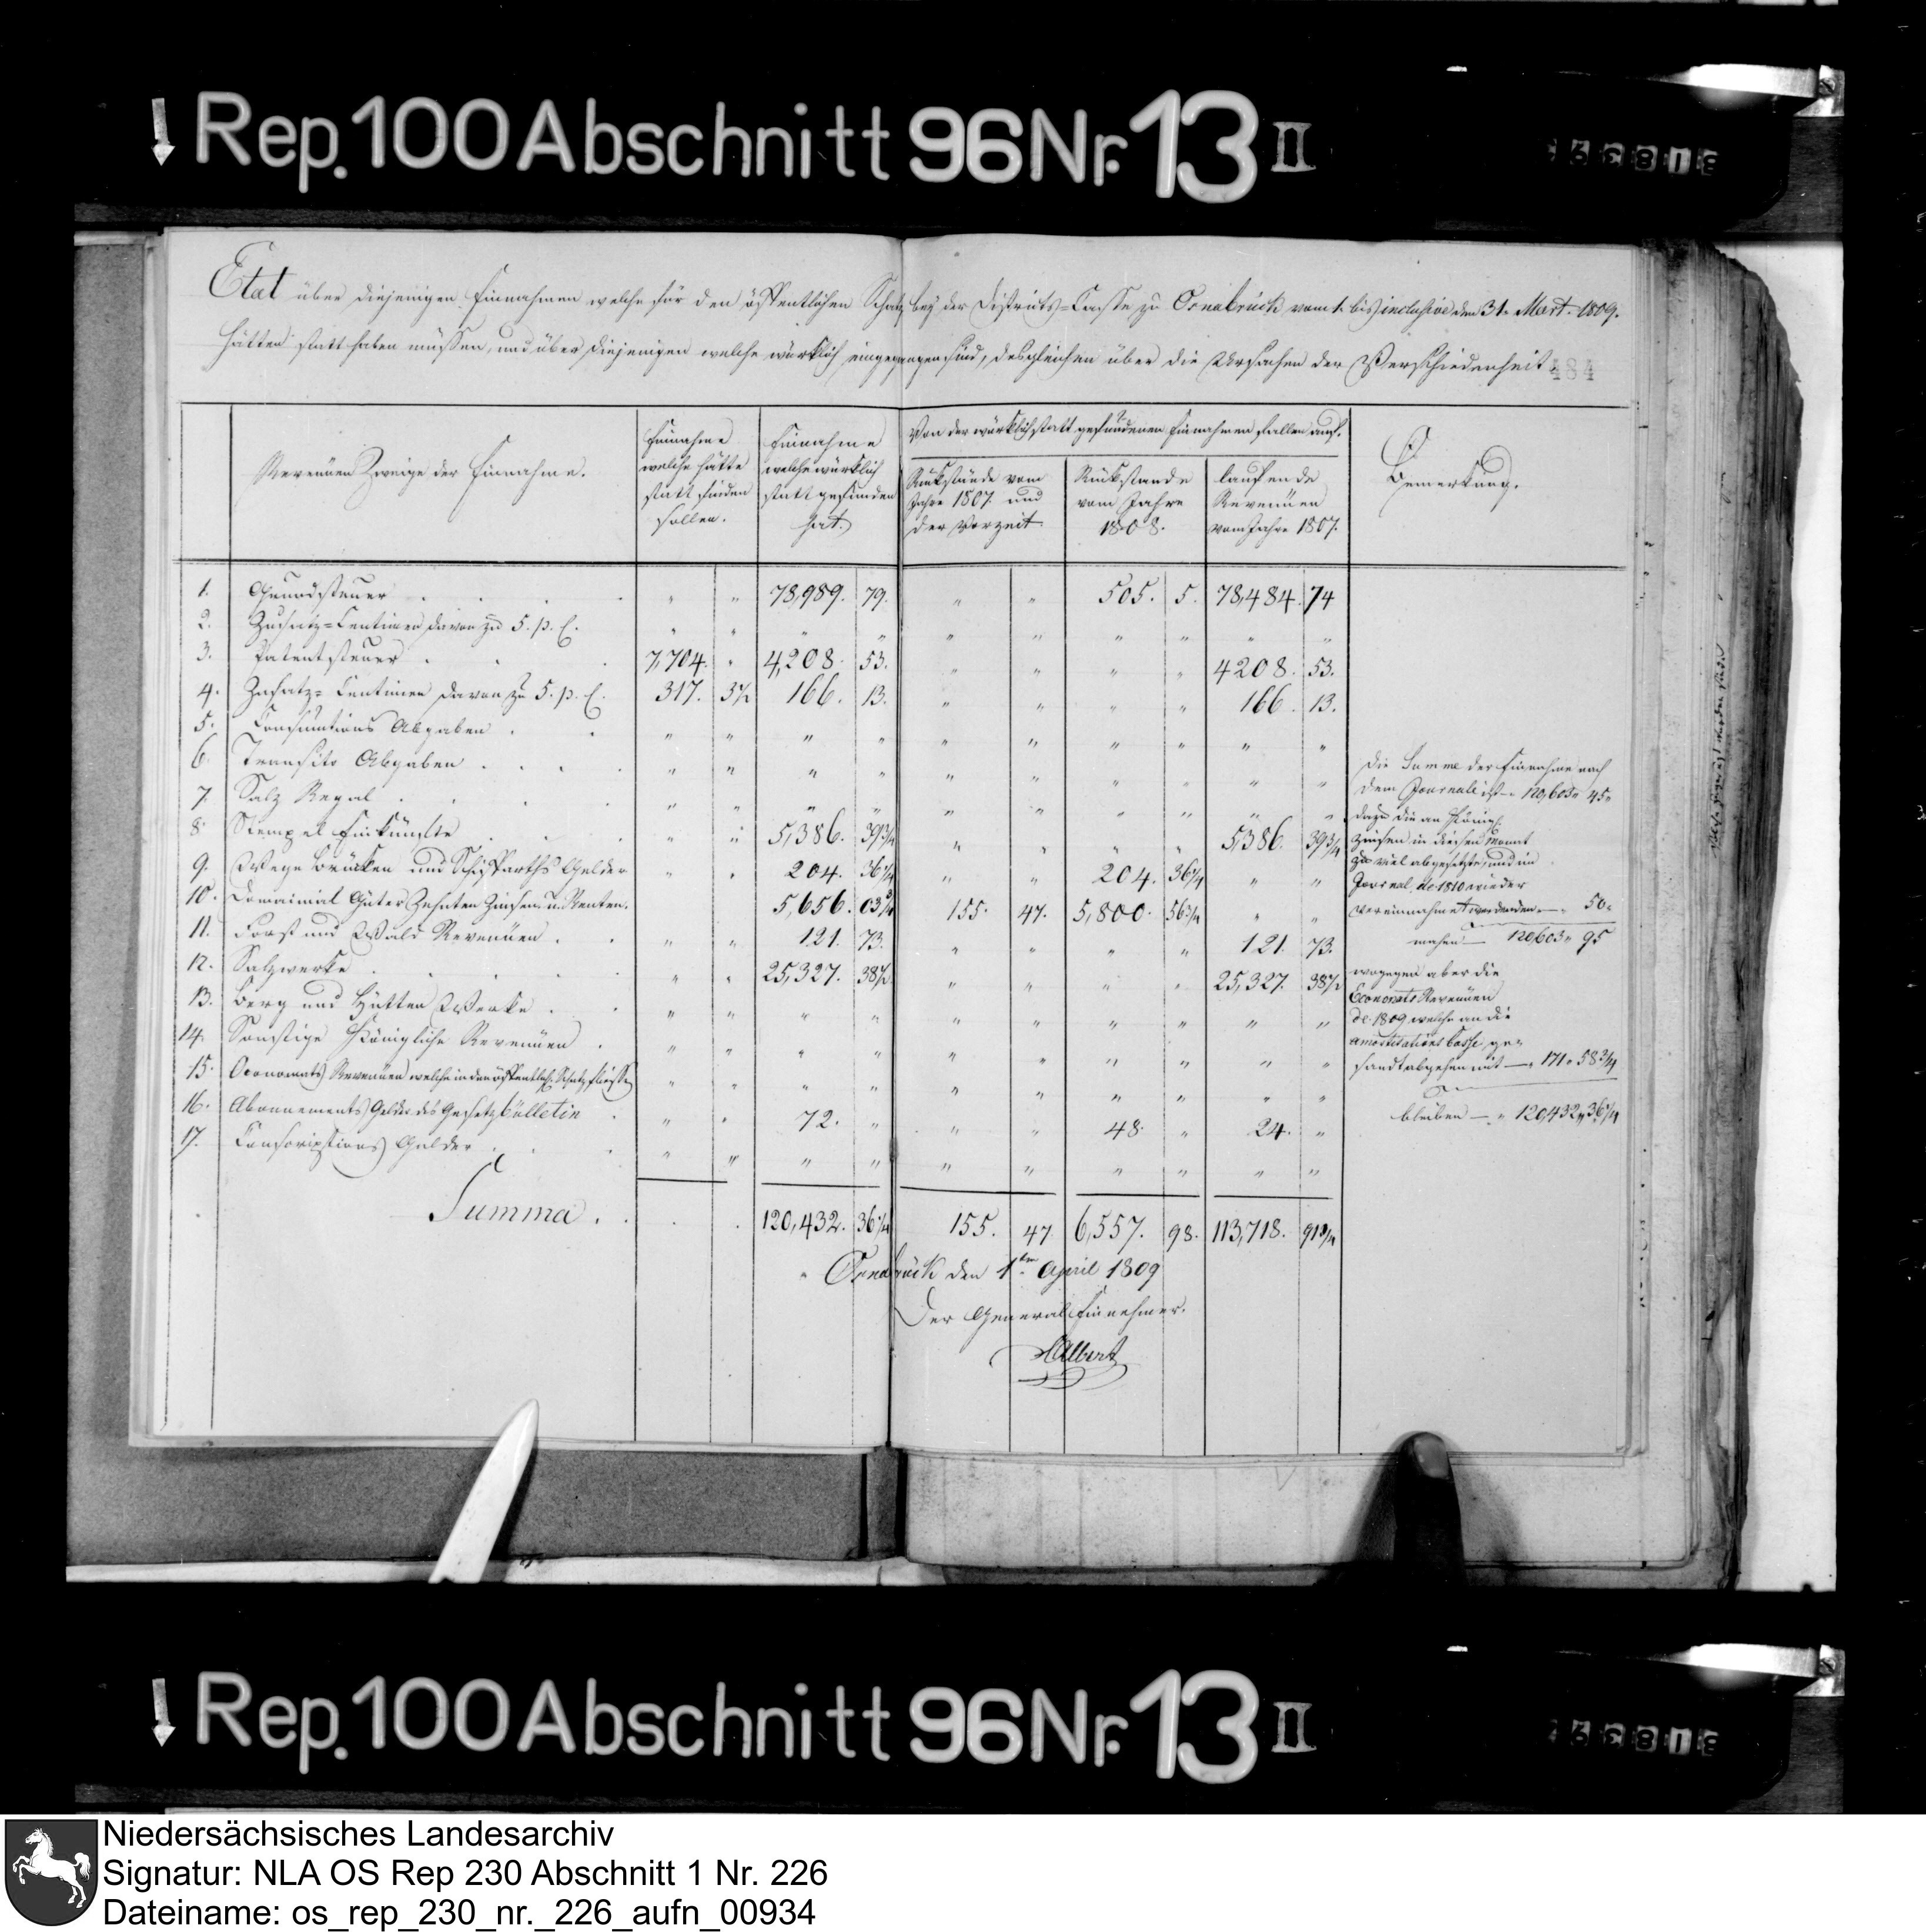 Rep. 100 Abschnitt 96 Nr. 13 II
318392
Etat über diejenigen Einnahmen welche für den öffentlichen Schatz bey der Districts-Casse zu Osnabrück vom 1. bis inclusive den 31. Maert. 1809.
hätten statt haben müssen, und über diejenigen welche würklich eingegangen sind, desgleichen über die Ursachen der Verschiedenheit
484
Revenüen Zweige der Einnahme.
Einnahme
welche hätte
statt finden
sollen.
Einnahme
welche würklich
statt gefunden
hat.
Von der würklich statt gefundenen Einnahmen fallen auf.
Rückstände vom
Jahre 1807. und
der Vorzeit
Rückstande
vom Jahre
1808.
laufende
Revenüen
vom Jahre 1807.
Bemerkung.
1. Grundsteuer . . . " " 78,989. 79. " " 505. 5. 78,484. 74
2. Zusatz-Centimen davon zu 5. p. C. " " " " " " " " " "
3. Patentsteuer . . . 7,704. " 4,208. 53. " " " " 4208. 53.
4. Zusatz-Centimen davon zu 5. p. C. 317. 3½ 166. 13. " " " " 166. 13.
5. Consumtions Abgaben . . " " " " " " " " " "
6. Transito Abgaben . . . . " " " " " " " " " "
7. Salz Regal . . . . " " " " " " " " " "
8. Stempel Einkünfte . . . " " 5,386. 39¾ " " " " 5,386. 39¾
9. Wege Brücken und Schiffarths Gelder " " 204. 36¼ " " 204. 36¼ " "
10. Domainial Güter Zehnten Zinsen u. Renten. 5,656. 03¾ 155. 47. 5,800. 56¾ " "
11. Forst und Wald Revenüen . . " " 121. 73. " " " " 121. 73.
12. Salzwerke . . . . " " 25,327. 38½ " " " " 25,327. 38½
13. Berg und Hütten Werke . . " " " " " " " " " "
14. Sonstige Königliche Revenüen . " " " " " " " " " "
15. Oeconomats Revenüen welche in den öffentlich. Schatz fliessen " " " " " " " " " "
16. Abonnements Gelder des Gesetzbülletin . " " 72. " " " 48. " 24. "
17. Conscriptions Gelder . . . " " " " " " " " " "
Summa . . 120,432. 36¼ 155. 47 6,557. 98. 113,718. 91¾
Die Summe der Einnahme nach
dem Journale ist — 120,603 " 45 "
dazu die an König.
Zinsen in diesen Monat
zu viel abgesetzte, und im
Journal, de 1810 wieder
vereinnahmet werdenden — " 50 "
machen — 120,603 " 95
wogegen aber die
Economats Revenüen
de. 1809 welche an die
amortisations Casse ge-
sandt abgehen mit — " 171 " 58¾
bleiben — " 120,432 " 36¼
Osnabrück den 1ten April 1809
Der General Einnehmer.
Albert
Rep. 100 Abschnitt 96 Nr. 13 II
318392
Niedersächsisches Landesarchiv
Signatur: NLA OS Rep 230 Abschnitt 1 Nr. 226
Dateiname: os_rep_230_nr._226_aufn_00934